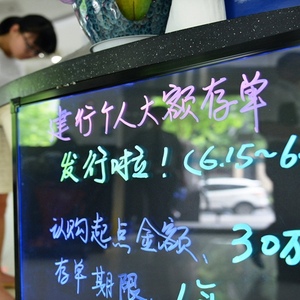 建行个人大额存单
发行啦！（6.15～6
认购起点金额、30万
存单期限、1年